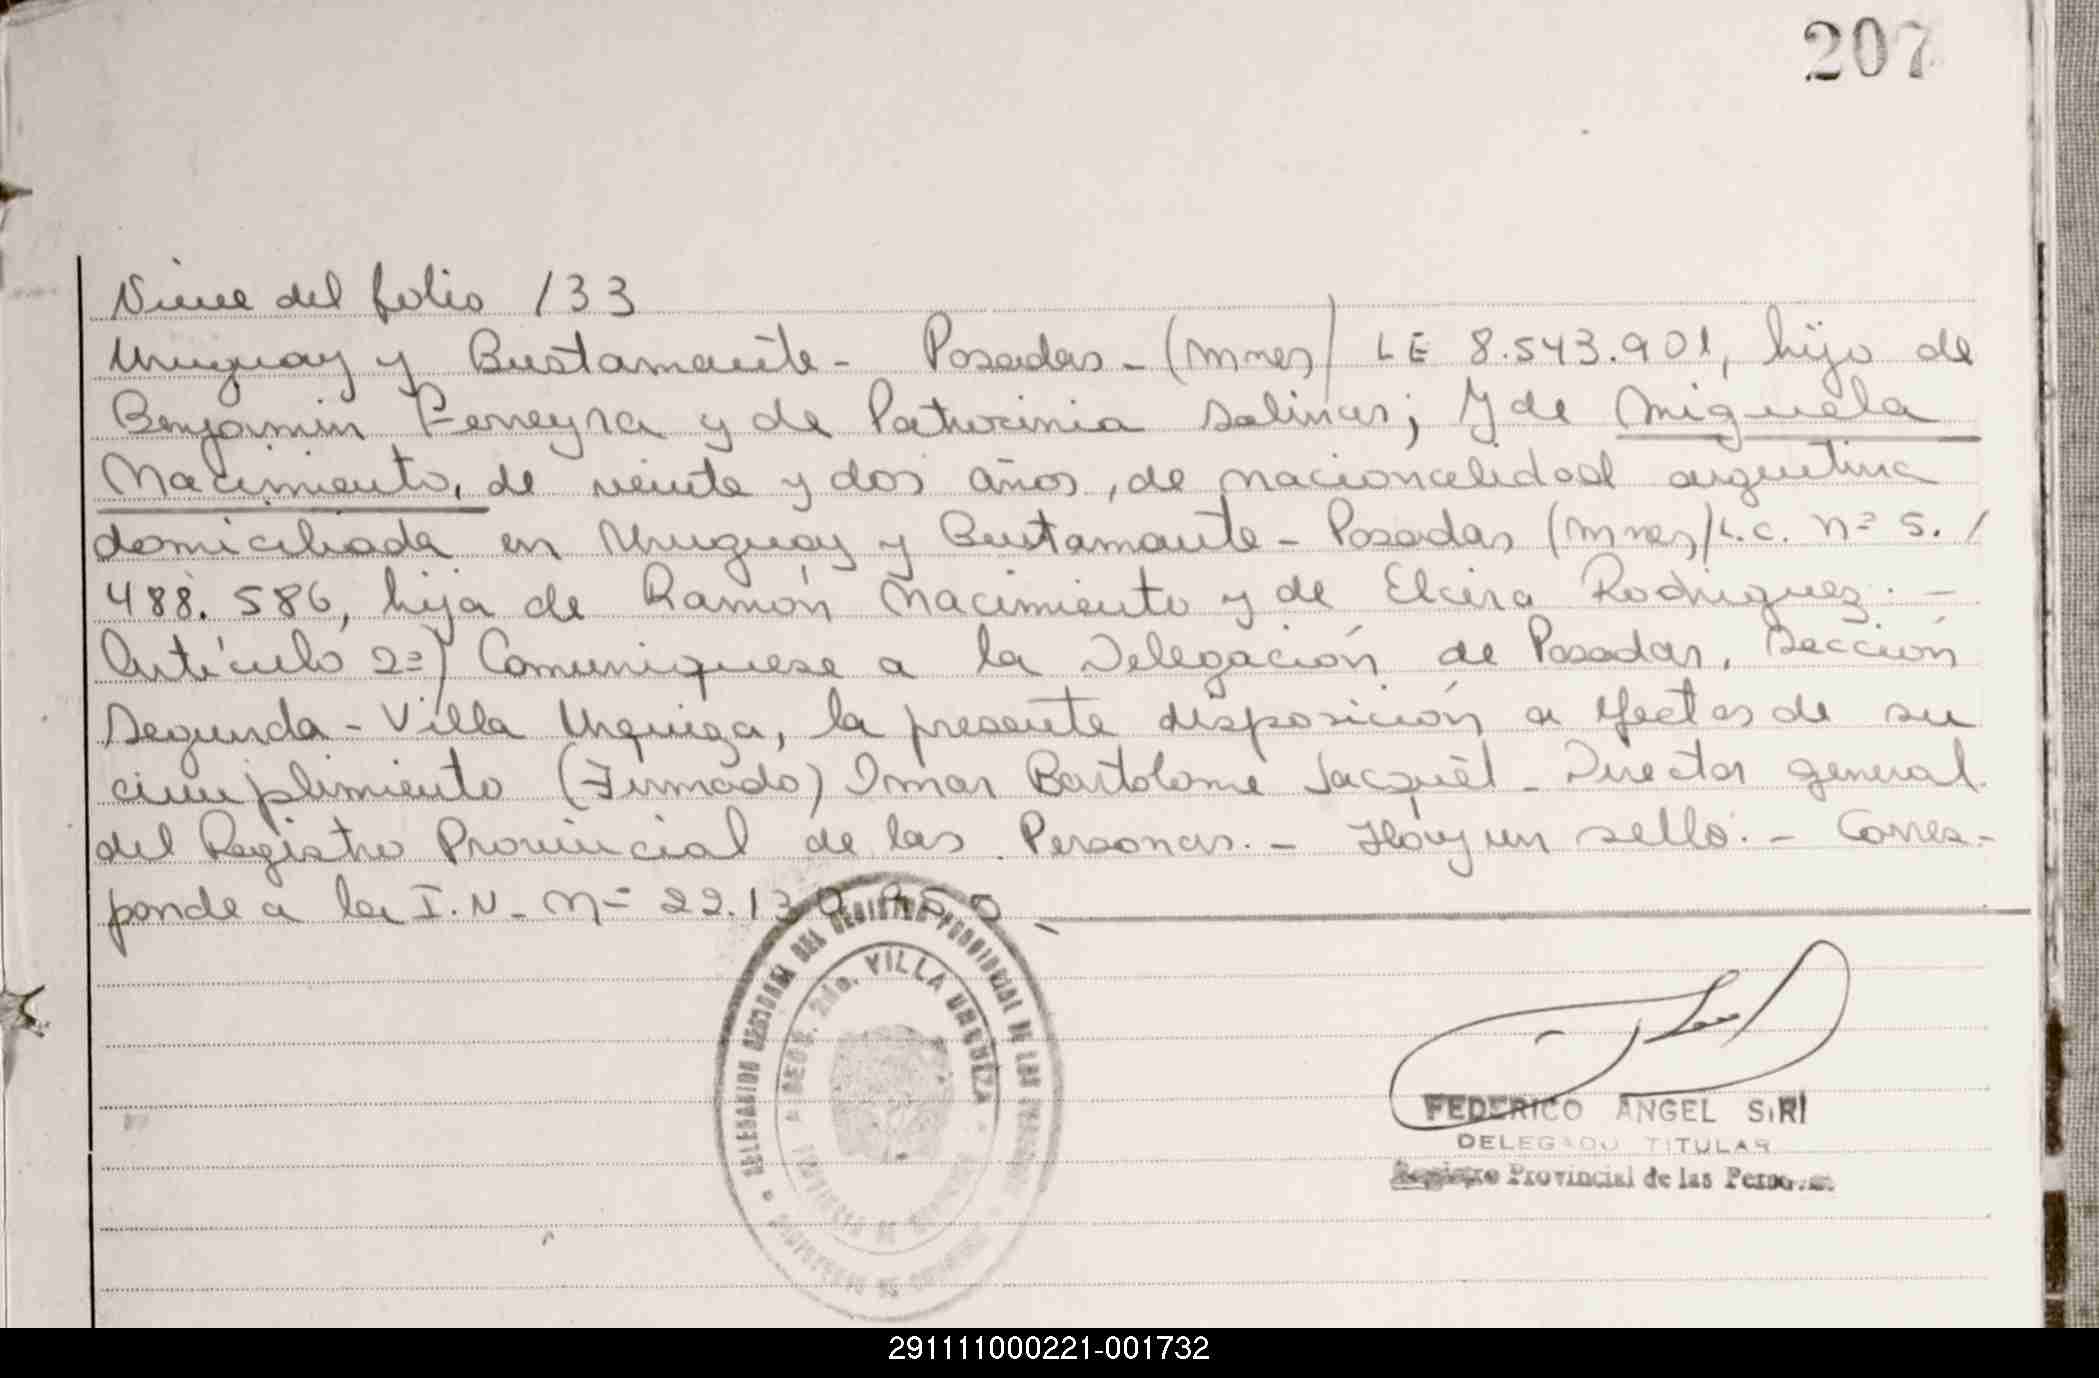 207
Viene del folio 133
Uruguay y Bustamante - Posadas - (Mnes) LE 8.543.901, hijo de
Benjamin Ferreyra y de Patrocinia Salinas; Y de Miguela
Nacimiento, de veinte y dos años, de nacionalidad argentina
domiciliada en Uruguay y Bustamante - Posadas (Mnes) L.C. Nº 5. /
488.586, hija de Ramón Nacimiento y de Elcira Rodriguez. -
Artículo 2º) Comuniquese a la Delegación de Posadas, Sección
Segunda - Villa Urquiza, la presente disposición a efectos de su
cumplimiento (Firmado) Omar Bartolome Jacquet - Director general
del Registro Provincial de las Personas. - Hay un sello. - Corres-
ponde a la I.N. Nº 22.130.
DELEGACION SECCIONAL DEL REGISTRO PROVINCIAL DE LAS PERSONAS
SECC. 2da. VILLA URQUIZA
PROVINCIA DE MISIONES
FEDERICO ANGEL SIRI
DELEGADO TITULAR
Registro Provincial de las Personas
291111000221-001732